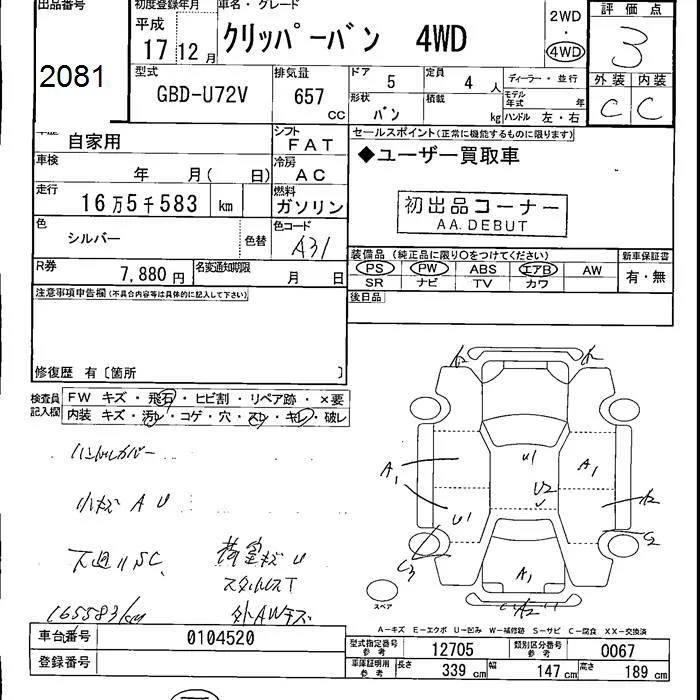 出品番号
2081
初度登録年月
平成
17 12 月
車名・グレード
クリッパーバン 4WD
2WD
・
4WD
評価点
3
外装 内装
C C
型式
GBD-U72V
排気量
657 cc
ドア
5
定員
4 人
ディーラー・並行
形状
バン
積載
kg
モデル年式 年
ハンドル 左・右
自家用
シフト
FAT
車検
年 月( 日)
冷房
AC
走行
16万5千583 km
燃料
ガソリン
色
シルバー
色替
色コード
A31
R券
7,880 円
名変通知期限
月 日
セールスポイント(正常に機能するものに限ります)
◆ユーザー買取車
初出品コーナー
AA.DEBUT
装備品(純正品に限り○をつけてください)
新車保証書
PS PW ABS エアB AW
有・無
SR ナビ TV カワ
後日品
注意事項申告欄(不具合内容等は具体的に記入して下さい)
修復歴 有〔箇所 〕
検査員記入欄
FW キズ・飛石・ヒビ割・リペア跡・×要
内装 キズ・汚レ・コゲ・穴・スレ・キレ・破レ
ハンドルカバー
小キズ A U
下廻り SC
荷室キズ U
スタッドレスT
165583km
外AWキズ
A1
U1
U1
U2
A1
A2
C2
C3
A1
A2
スペア
A-キズ E-エクボ U-凹み W-補修跡 S-サビ C-腐食 XX-交換済
車台番号 0104520
登録番号
型式指定番号 参考 12705
類別区分番号 参考 0067
車庫証明用 参考
長さ 339 cm 幅 147 cm 高さ 189 cm